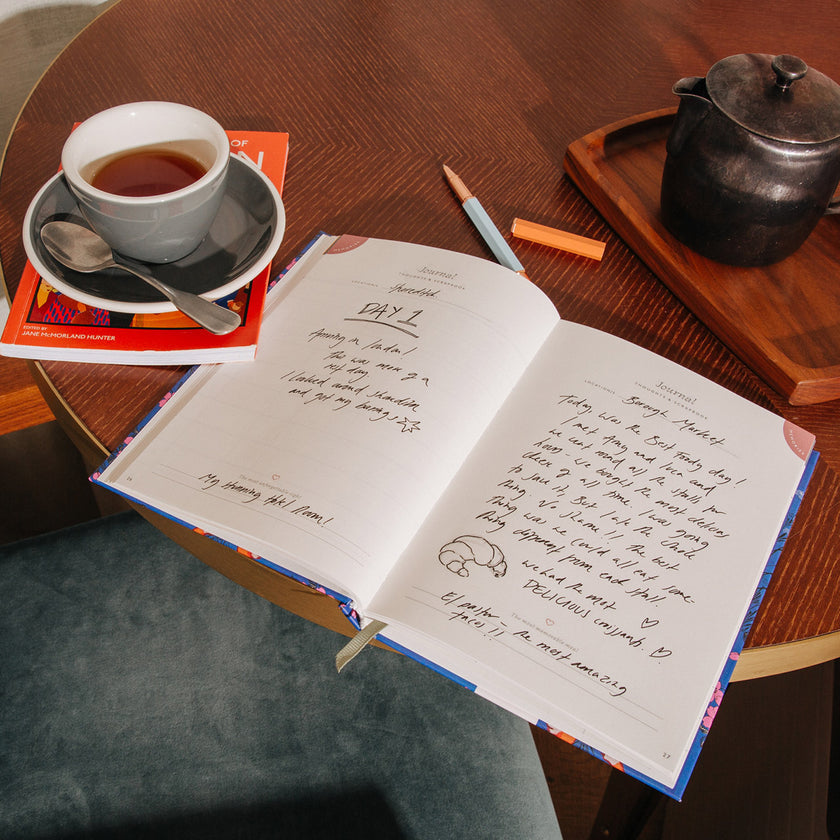 OF
EDITED BY
JANE McMORLAND HUNTER
Journal
THOUGHTS & SCRAPBOOK
LOCATIONS Shoreditch
DAY 1
Arriving in London!
This was more of a
rest day
I looked around shoreditch
and got my bearings
The most unforgettable sight
My stunning Hotel Room!
26
Journal
THOUGHTS & SCRAPBOOK
LOCATIONS Borough Market
Today, was the Best Foody day!
I met Amy and Luca and
we went round all the stalls for
hours - we bought the most delicious
cheese of all time. I was going
to save it, But I ate the whole
thing. No shame!! The best
thing was we could all eat some-
thing different from each stall.
we had the most
DELICIOUS croissants.
The most memorable meal
El pastor - the most amazing
tacos!!
27